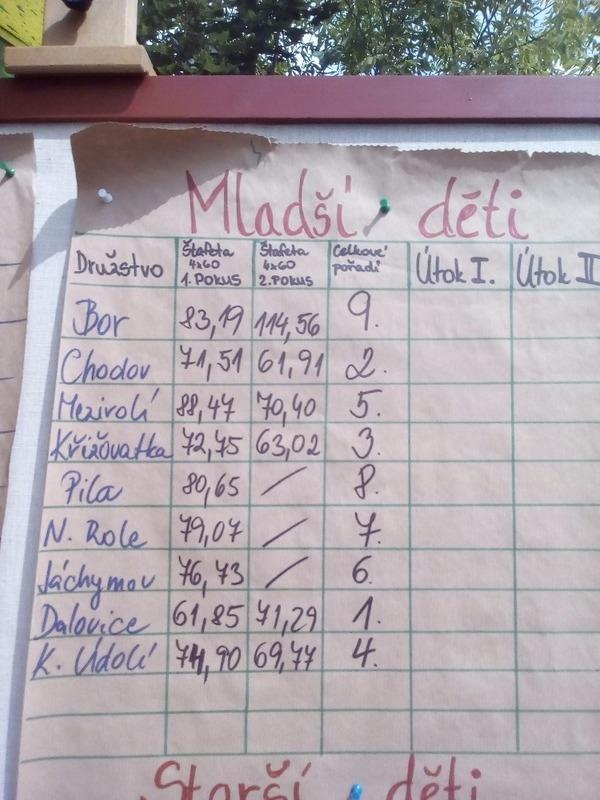 Mladší děti
Družstvo Štafeta 4x60 1. POKUS Štafeta 4x60 2. POKUS Celkové pořadí Útok I. Útok II
Bor 83,19 114,56 9.
Chodov 71,51 61,91 2.
Mezirolí 88,47 70,40 5.
Křižovatka 72,75 63,02 3.
Pila 80,65 / 8.
N. Role 79,07 / 7.
Jáchymov 76,73 / 6.
Dalovice 61,85 71,29 1.
K. Údolí 74,90 69,77 4.
Starší děti